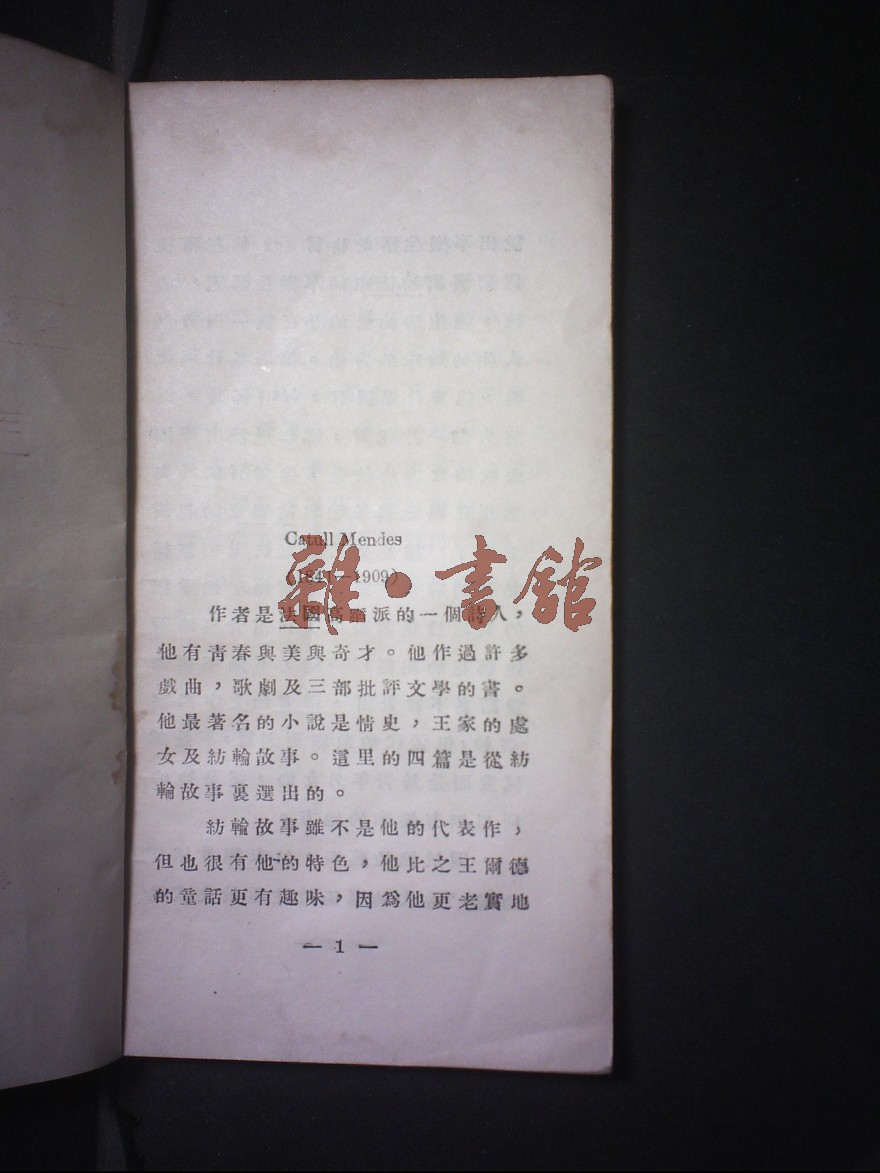 Catull Mendes
(1841—1909)
作者是法國高蹈派的一個詩人，
他有靑春與美與奇才。他作過許多
戲曲，歌劇及三部批評文學的書。
他最著名的小說是情史，王家的處
女及紡輪故事。這里的四篇是從紡
輪故事裏選出的。
紡輪故事雖不是他的代表作，
但也很有他的特色，他比之王爾德
的童話更有趣味，因爲他更老實地
— 1 —
雜·書館